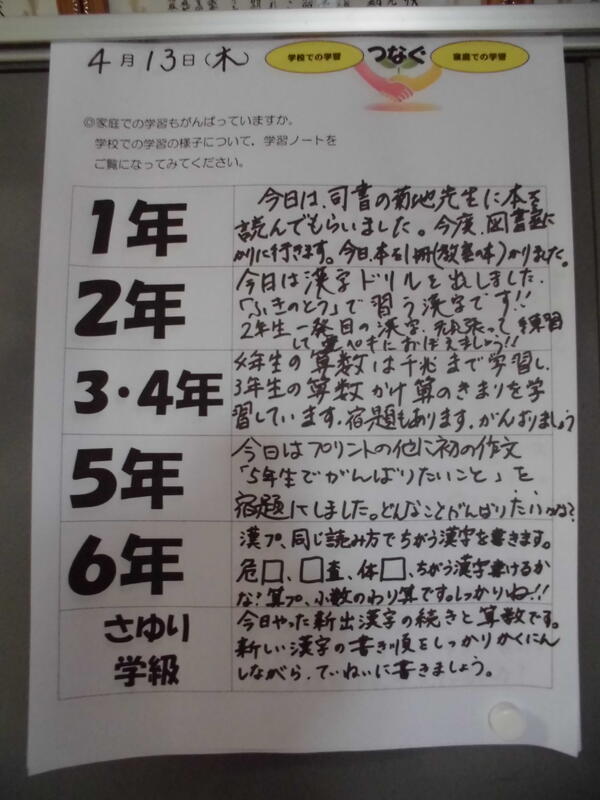 4月13日(木)
学校での学習 つなぐ 家庭での学習
◎家庭での学習もがんばっていますか。
学校での学習の様子について、学習ノートを
ご覧になってみてください。
1年
今日は、司書の菊地先生に本を
読んでもらいました。今度、図書室に
かりに行きます。今日、本を1冊(教室の本)かりました。
2年
今日は漢字ドリルを出しました。
「ふきのとう」で習う漢字です!!
2年生一発目の漢字、頑張って練習
して、完ぺきにおぼえましょう!!
3・4年
4年生の算数は千兆まで学習し、
3年生の算数かけ算のきまりを学
習しています。宿題もあります。がんばりましょう
5年
今日はプリントの他に初の作文
「5年生でがんばりたいこと」を
宿題にしました。どんなことがんばりたいかな?
6年
漢プ、同じ読み方でちがう漢字を書きます。
危□、□査、体□、ちがう漢字書けるか
な?算プ、小数のわり算です。しっかりね!!
さゆり
学級
今日やった新出漢字の続きと算数です。
新しい漢字の書き順をしっかりかくにん
しながら、ていねいに書きましょう。